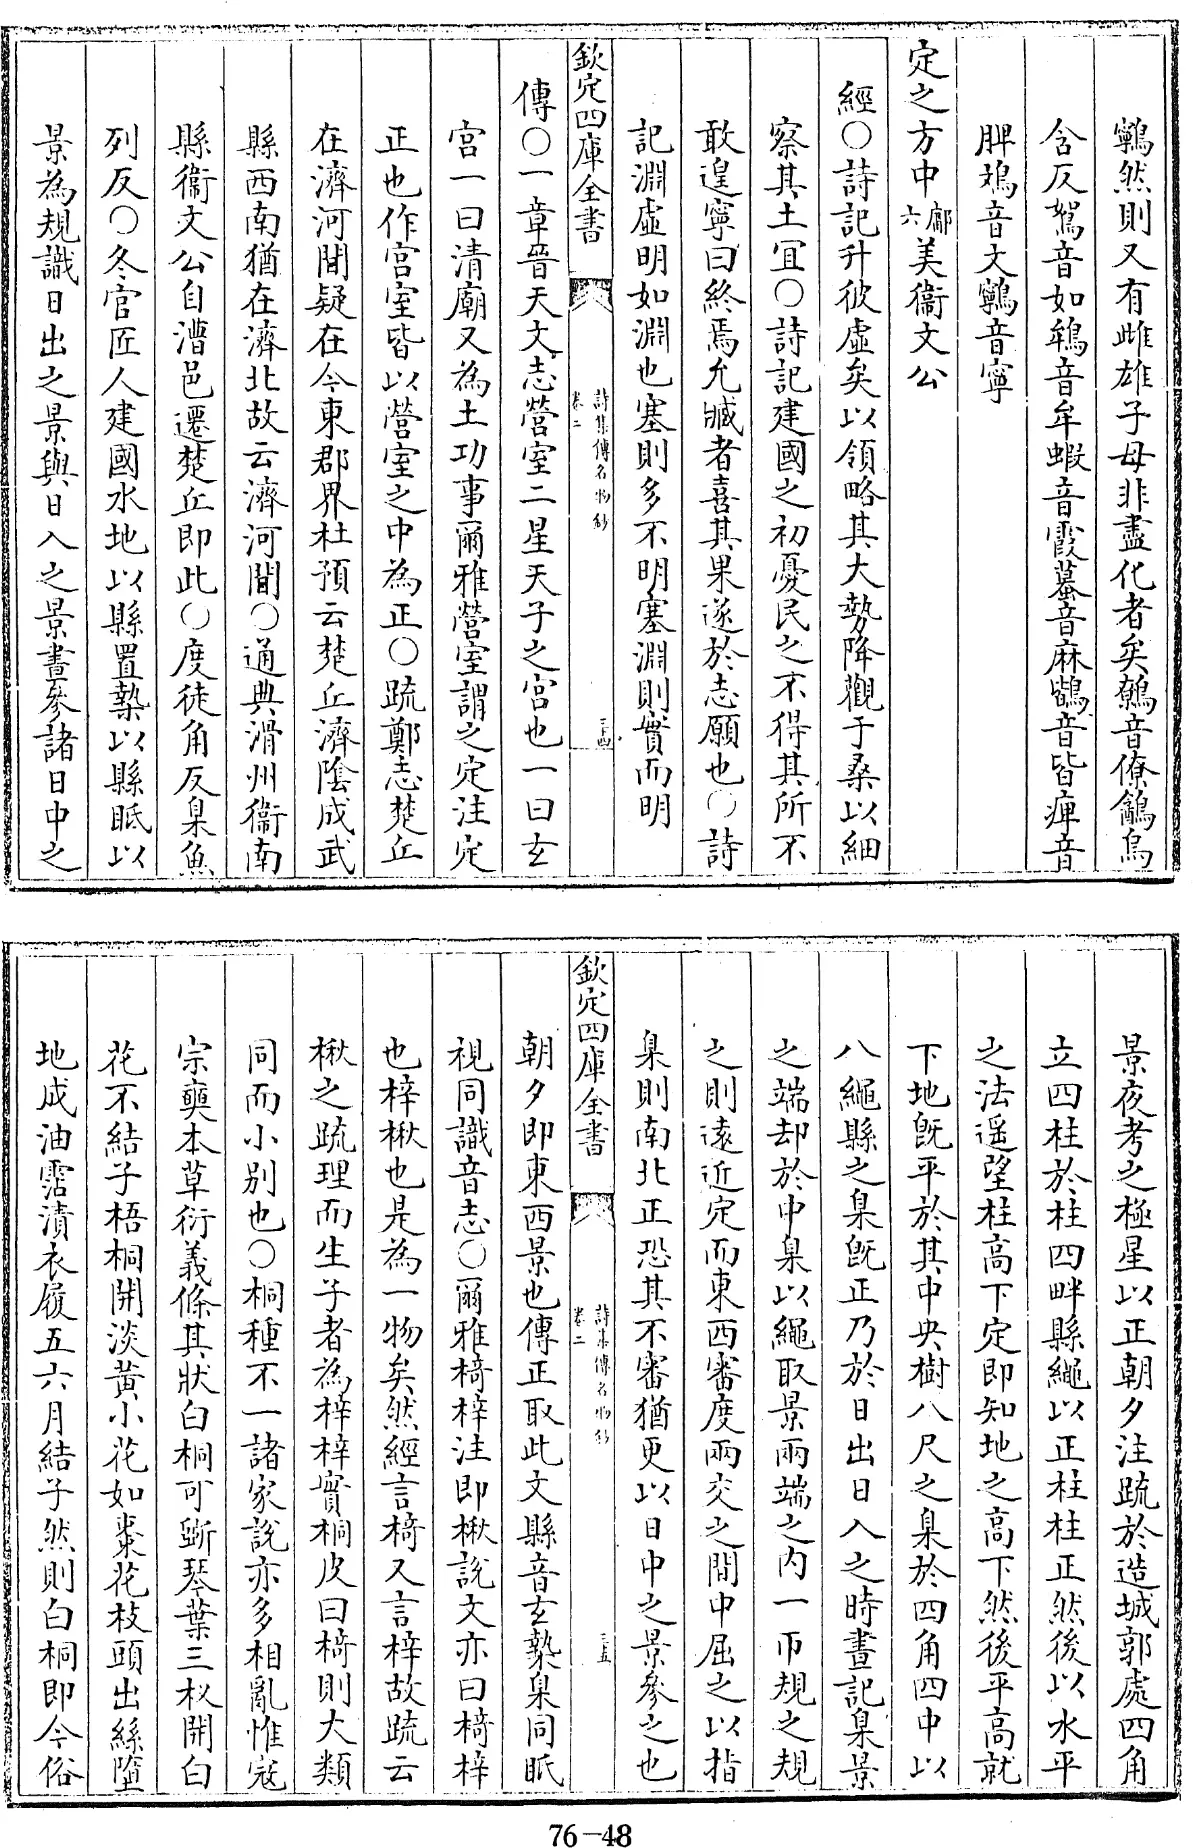 鶉然則又有雌雄子母非盡化者矣鷯音僚鶬烏
含反鴽音如鴾音牟蝦音霞蟇音麻鶛音皆痺音
脾鳼音文鸋音寧
定之方中鄘六美衞文公
經○詩記升彼虛矣以領略其大勢降觀于桑以細
察其土宜○詩記建國之初憂民之不得其所不
敢遑寧曰終焉允臧者喜其果遂於志願也○詩
記淵虛明如淵也塞則多不明塞淵則實而明
欽定四庫全書
詩集傳名物鈔
卷二
三十四
傳○一章晉天文志營室二星天子之宮也一曰玄
宮一曰清廟又為土功事爾雅營室謂之定注定
正也作宮室皆以營室之中為正○疏鄭志楚丘
在濟河間疑在今東郡界杜預云楚丘濟隂成武
縣西南猶在濟北故云濟河間○通典滑州衞南
縣衞文公自漕邑遷楚丘即此○度徒角反臬魚
列反○冬官匠人建國水地以縣置槷以縣眡以
景為規識日出之景與日入之景晝參諸日中之
景夜考之極星以正朝夕注疏於造城郭處四角
立四柱於柱四畔縣繩以正柱柱正然後以水平
之法遥望柱高下定即知地之高下然後平高就
下地旣平於其中央樹八尺之臬於四角四中以
八繩縣之臬旣正乃於日出日入之時晝記臬景
之端却於中臬以繩取景兩端之内一帀規之規
之則遠近定而東西審度兩交之間中屈之以指
臬則南北正恐其不審猶更以日中之景參之也
欽定四庫全書
詩集傳名物鈔
卷二
三五
朝夕即東西景也傳正取此文縣音玄槷臬同眡
視同識音志○爾雅椅梓注即楸説文亦曰椅梓
也梓楸也是為一物矣然經言椅又言梓故疏云
楸之疏理而生子者為梓梓實桐皮曰椅則大類
同而小别也○桐種不一諸家說亦多相亂惟寇
宗奭本草衍義條其狀白桐可斵琴葉三杈開白
花不結子梧桐開淡黄小花如棗花枝頭出絲墮
地成油霑漬衣履五六月結子然則白桐即今俗
76-48